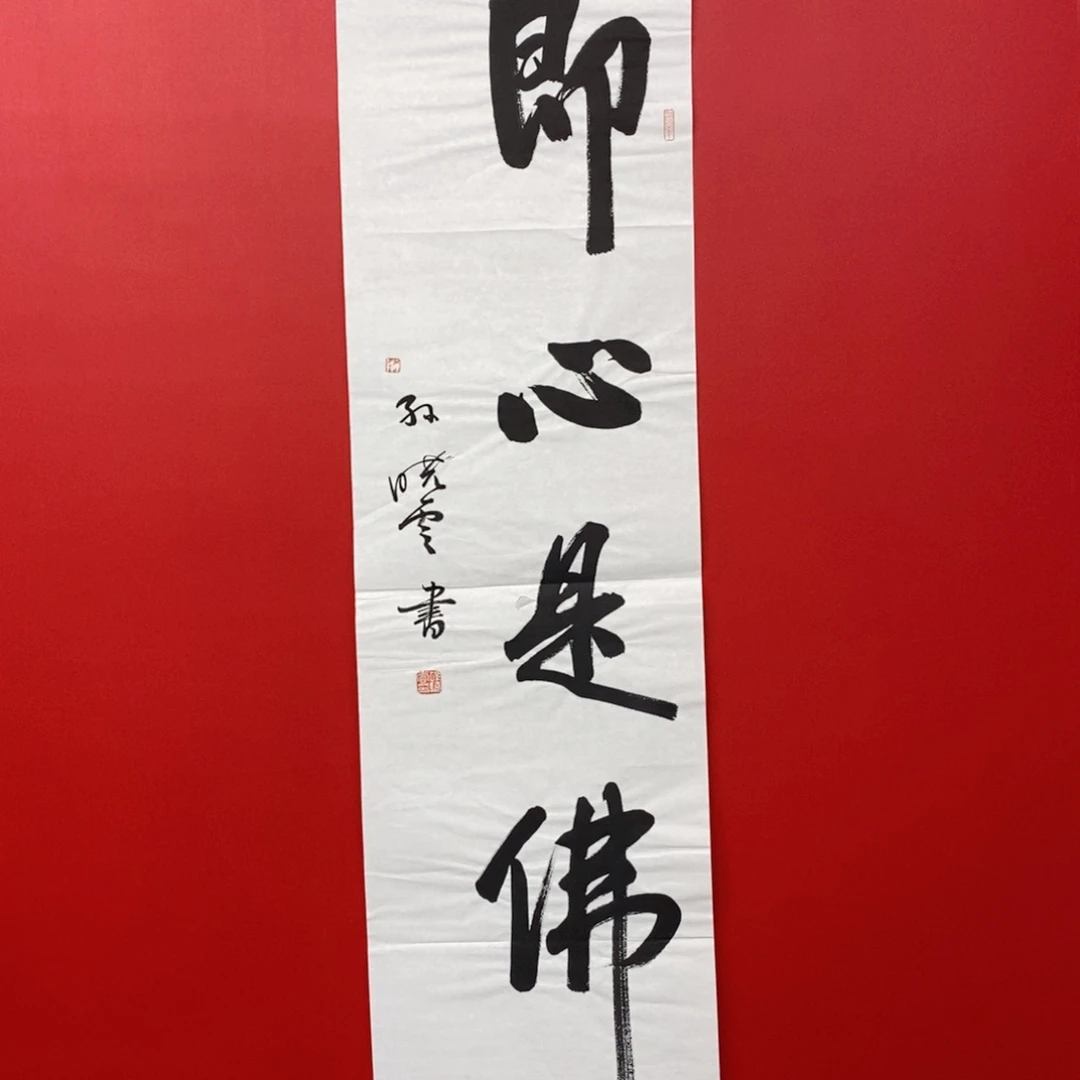 即心是佛
孙晓云書